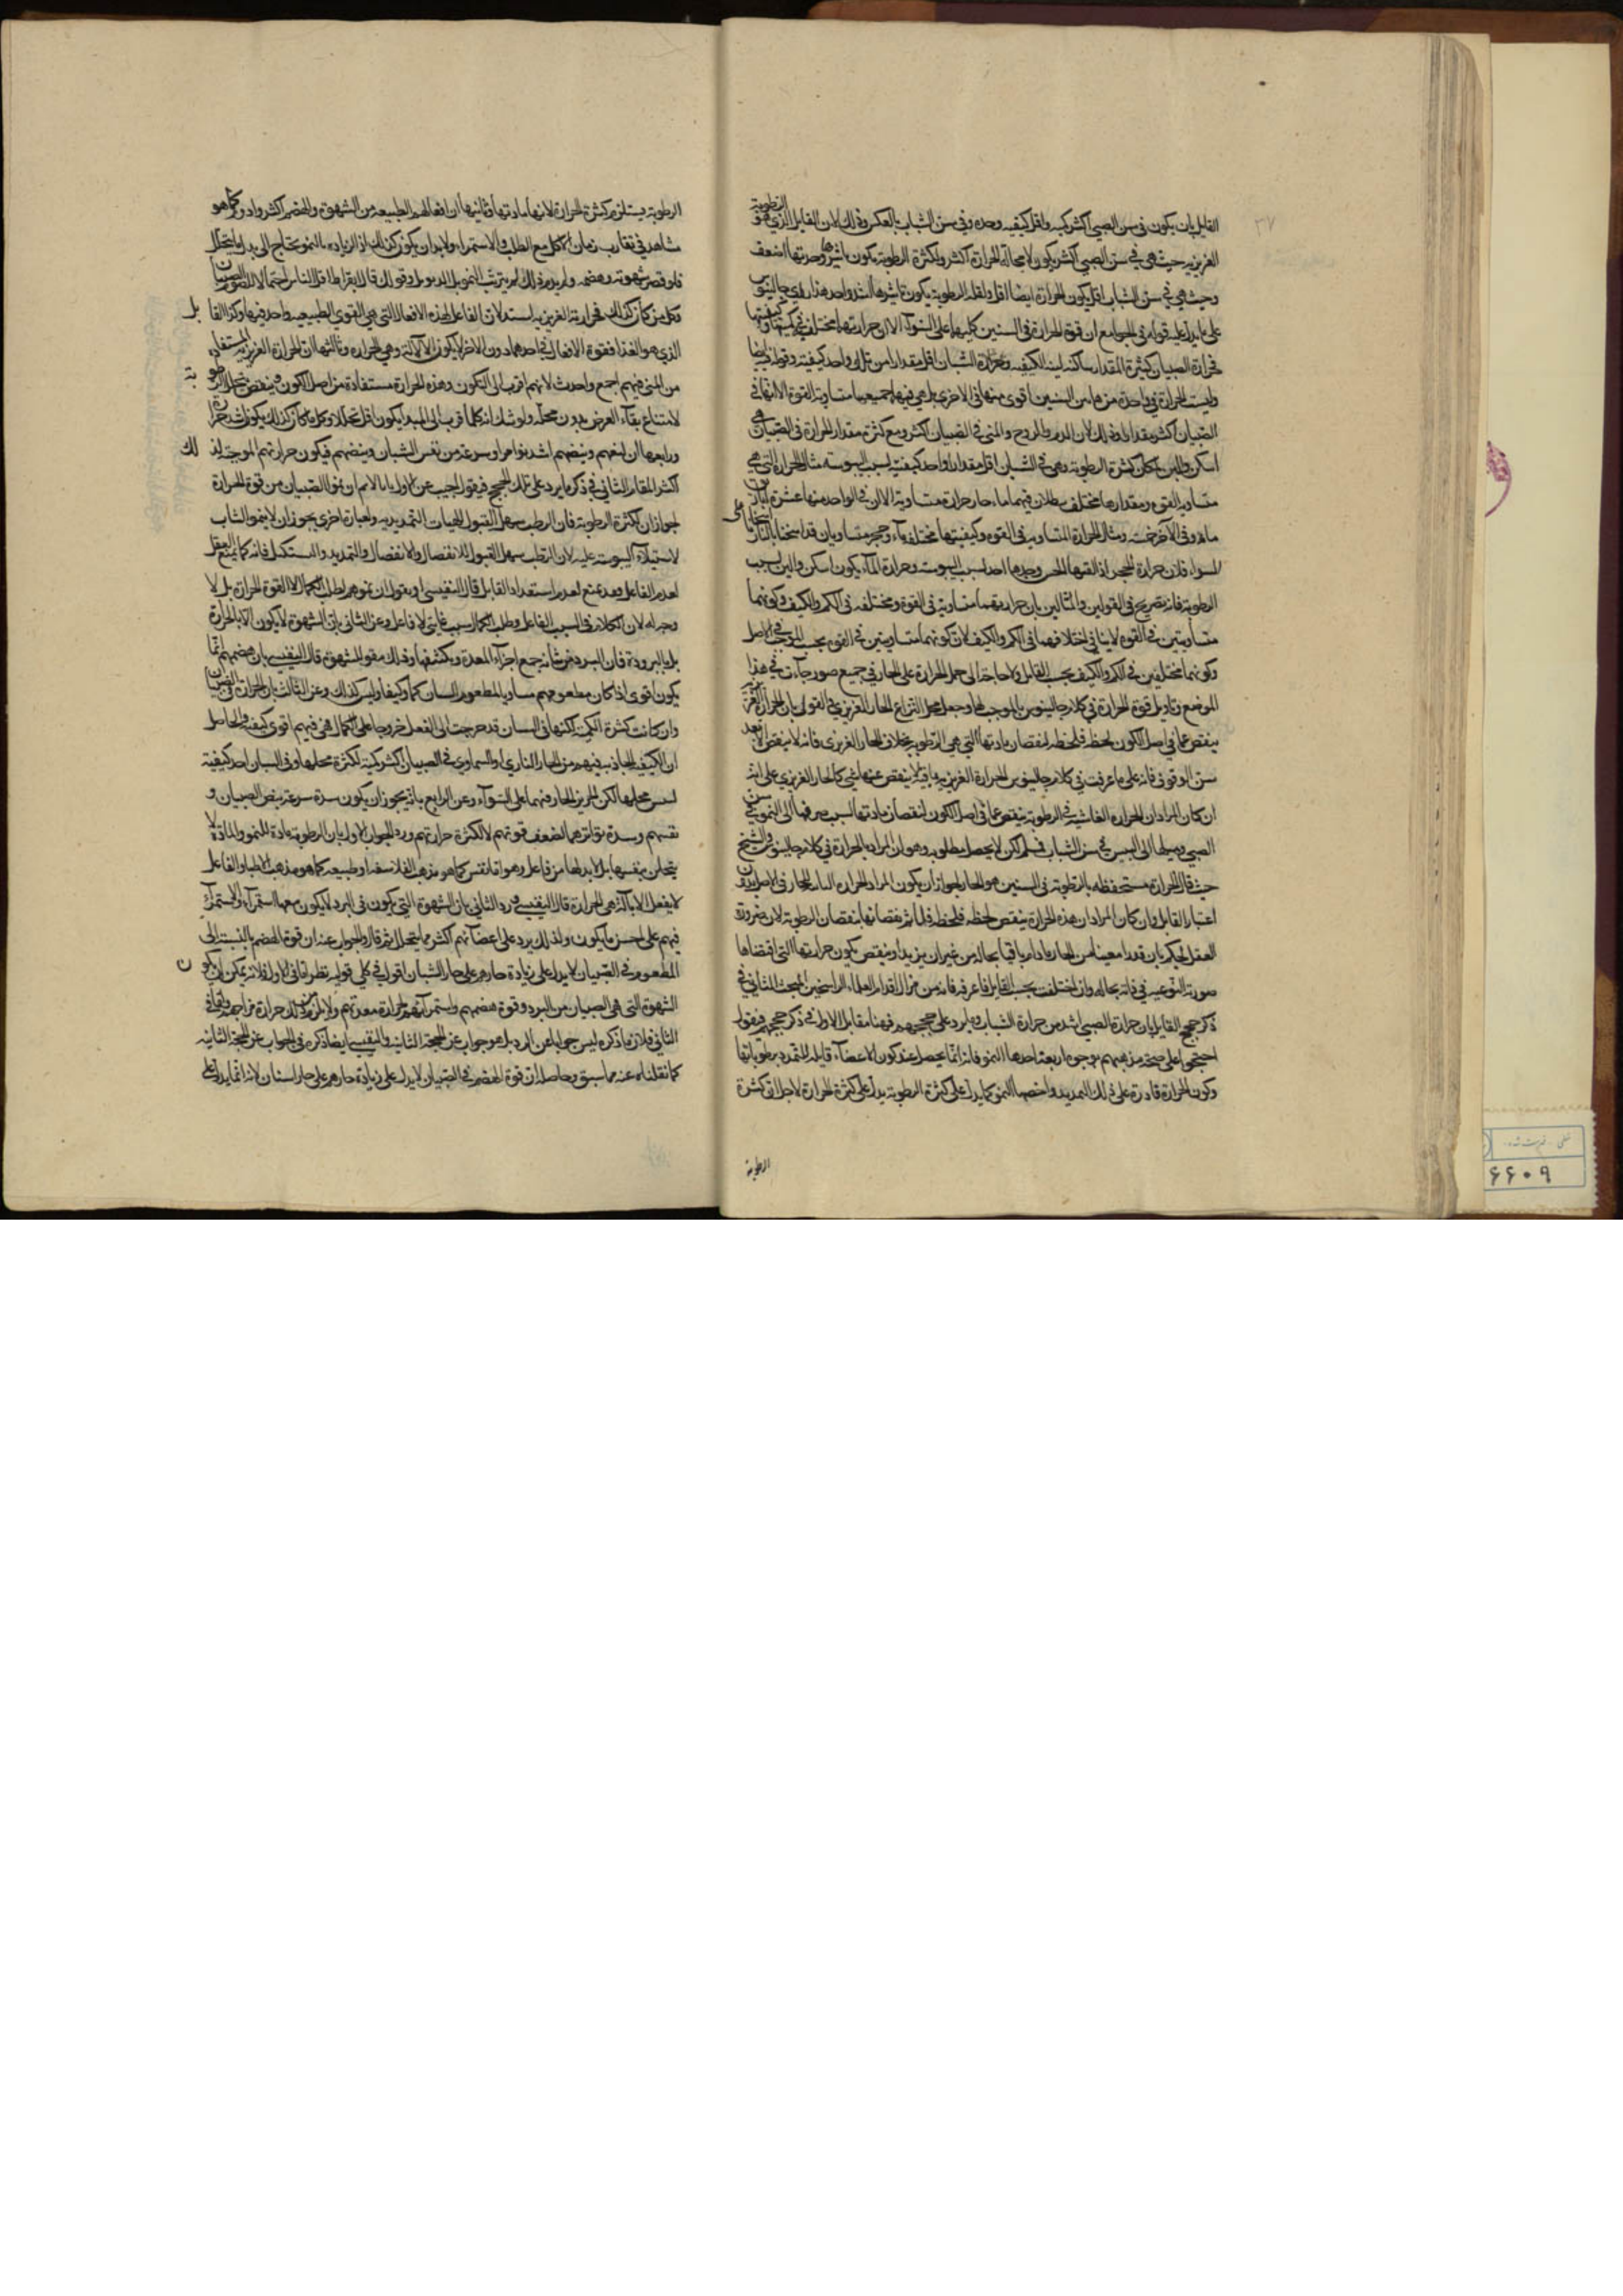 القابل بان يكون فى سن الصبى اكثر كمية واقل كيفية وحده وفى سن الشباب بالعكس وذلك لان القابل الذى هو الرطوبة
الغريزيه حيث هى فى سن الصبى اكثر يكون لا محاله الحرارة اكثر ولكثرة الرطوبة يكون تاثيرها وحدتها اضعف
وحيث هى فى سن الشباب اقل يكون الحرارة ايضا اقل ولقلة الرطوبة يكون تاثيرها اشد واحد هذا راى جالينوس
على ما يدل عليه قوله فى الجوامع ان قوة الحرارة فى السنين كليهما على السوآء الا ان حرارتهما مختلف فى كميتها وكيفيتها
فحرارة الصبيان كثيرة المقدار ساكنه لينة الكيفيه وحرارة الشبان اقل مقدارا من تلك واحد كيفية وقوله ايضا
وليست الحرارة فى واحدة من هاتين السنين اقوى منها فى الاخرى بل هى فيهما جميعا متساوية القوة الا انها فى
الصبيان اكثر مقدارا وذلك لان الدم والروح والمنى فى الصبيان اكثر ومع كثرة مقدار الحرارة فى الصبيان هى
اسكن والين لمكان كثرة الرطوبة وهى فى الشبان اقل مقدارا واحد كيفية لسبب اليبوسه مثال الحرارة التى هى
متساوية القوه ومقدارها مختلف
ماء وفى الآخر خمسه ومثال الحرارة المتساويه فى القوه وكيفيتها مختلفه ماء وحجر متساويان قد اسخنا بالنار اسخانا على
السواء فلان حرارة الحجر اذا لقيها الحس وجدها احد لسبب اليبوسه وحرارة المآء يكون اسكن والين لسبب
الرطوبة فانه تصريح فى القولين والمثالين بان حرارتهما متساوية فى القوة ومختلفه فى الكم والكيف وكونهما
متساويتين فى القوه لا ينافى اختلافهما فى الكم والكيف لان كونهما متساويتين فى القوه بحسب الموجب فى الاصل
وكونهما مختلفين فى الكم والكيف بحسب القابل ولا حاجة الى حمل الحرارة على الحار فى جميع صور جآءت فى هذا
الموضع وتاويل قوة الحرارة فى كلام جالينوس بالموجب لها وجعل محل النزاع الحار الغريزى والقول بان الحرارة الغريزيه
ينقص عما فى اصل الكون لحظه فلحظه لنقصان مادتها التى هى الرطوبه بخلاف الحار الغريزى فانه لا ينقص الا بعد
سن الوقوف فانه على ما عرفت فى كلام جالينوس الحرارة الغريزيه باقية لا ينقص عنها شى كالحار الغريزى على انه
ان كان المراد ان الحراره الفاشيه فى الرطوبه ينقص عما فى اصل الكون لنقصان مادتها لسبب صرفها الى النمو فى سن
الصبى وميلها الى اليبس فى سن الشباب فمسلم لكن لا يحصل مطلوبه وهو ان المراد بالحرارة فى كلام جالينوس والشيخ
حيث قال الحرارة مستحفظه بالرطوبه فى السنين هو الحار لجواز ان يكون المراد الحراره
اعتبار القابل وان كان المراد ان هذه الحرارة ينقص لحظه فلحظه فلم اثر نقصانها بنقصان الرطوبة لان ضرورة
العقل يحكم بان قدرا معينا من الحار ما دام باقيا بحاله من غير ان يزيد او ينقص يكون حرارتها التى اقتضاها
صورته النوعيه فى ذاته بحاله وان اختلفت بحسب القابل فاعرفه فانه من مزال اقدام العلماء الراسخين المبحث الثانى فى
ذكر حجج القايل بان حرارة الصبى اشد من حرارة الشباب وما يرد على حججهم فهنا مقامان الاول فى ذكر حججهم فنقول
احتجوا على صحة مذهبهم بوجوه اربعة احدها النمو فانه انما يحصل عند كون الاعضآء قابلة للتمدد برطوباتها
وكون الحرارة قادرة على ذلك التمديد واخصها النمو كما يدل على كثرة الرطوبة يدل على كثرة الحرارة لاجل ان كثرة
الرطوبة
الرطوبة يستلزم كثرة الحرارة لانها مادتها وثانيها ان افعالهم الطبيعيه من الشهوة والهضم اكثر وادوم كما هو
مشاهد فى تقارب زمان الاكل مع الطلب والاستمراء ولا بد ان يكون كذلك اذ الزياده بالنمو يحتاج الى بدل ما يتحلل
فلو قصر شهوته وهضمه ولم يدم ذلك لم يترتب النمو بل الذبول وقولك قال بقراط اقل الناس احتمالا للصوم الصبيان
وكل من كان كذلك فحرارته الغريزيه اشد لان الفاعل لهذه الافعال التى هى القوى الطبيعيه واحد فيها وكذا القابل
الذى هو الغذا فقوة الافعال فى احدهما دون الاخر لا يكون الا لآلة وهى الحراره وثالثها ان الحرارة الغريزيه المستفاده
من المنى فيهم اجمع واحدث لانهم اقرب الى التكون وهذه الحرارة مستفادة من اصل الكون وينقص بتحلل الرطوبة
لامتناع بقآء العرض بدون محله ولا شك انه كلما اقرب الى المبدا يكون اقل تحللا وكل ما كان كذلك يكون اشد حرارة
ورابعها ان نبضهم ونفسهم اشد تواترا وسرعة من نفس الشبان ونبضهم فيكون حرارتهم الموجبة لذلك
اكثر المقام الثانى فى ذكر ما يرد على تلك الحجج فنقول اجيب عن الاول بانا لا نم ان نمو الصبيان من قوة الحرارة
لجواز ان لكثرة الرطوبة فان الرطب سهل القبول للهيات التمديديه وبعبارة اخرى يجوز ان لا ينمو الشاب
لاستيلآء اليبوسه عليه لان الرطب سهل القبول للانفصال والاتصال والتمديد والتشكل فانه كما يمتنع الفعل
لعدم الفاعل وقد يمتنع لعدم استعداد القابل قال النفيسى او يقول ان نموهم لطلب الكمال لا لقوة الحرارة بل لا
وجه له لان الكلام فى السبب الفاعل وطلب الكمال سبب غايى لا فاعل وعن الثانى بان الشهوة لا يكون الا بالحرارة
بل بالبرودة فان البرد من شانه جمع اجزآء المعدة وتكثيفها وذلك مقو للشهوة قال النفيسى بان هضمهم انما
يكون اقوى اذا كان مطعومهم مساويا لمطعوم الشبان كما وكيفا وليس كذلك وعن الثالث بان الحرارة فى الصبيان
وان كانت كثيرة الكمية لكنها فى الشبان قد خرجت الى الفعل خروجا على الكمال فهى فيهم اقوى كيفية والحاصل
ان الكيفيه الحادثه فيهم من الحار النارى او السماوى فى الصبيان اكثر كمية لكثرة محلها وفى الشبان احد كيفية
ليبس محلها لكن الحار فيهما على السوآء وعن الرابع بانه يجوز ان يكون شدة سرعة نبض الصبيان و
نفسهم وشدة تواترهما لضعف قوتهم لا لكثرة حرارتهم ورد الجواب الاول بان الرطوبة مادة للنمو والمادة لا
يتخلق بنفسها بل لا بد لها من فاعل وهو اما نفس كما هو مذهب الفلاسفه او طبيعه كما هو مذهب الاطبا والفاعل
لا يفعل الا بآلة هى الحرارة قال النفيسى ورد الثانى بان الشهوة التى يكون فى البرد لا يكون معها استمرآء والاستمرآء
فيهم على احسن ما يكون ولذلك يرد على اعضآئهم اكثر مما يتحلل ثم قال والجواب عنه ان قوة الهضم بالنسبة الى
المطعوم فى الصبيان لا يدل على زيادة حارهم على حار الشبان اقول فى كلى قوليه نظر اما فى الاول فلانه يمكن ان يكون
الشهوة التى هى الصبيان من البرد وقوة هضمهم واستمرآئهم لحرارة معدتهم ولا يلزم من ذلك حرارة مزاجهم واما فى
الثانى فلان ما ذكره ليس جوابا عن الرد بل هو جواب عن الحجة الثانيه والنفيسى ايضا ذكره فى الجواب عن الحجة الثانيه
كما نقلناه عنه مما سبق وحاصله ان قوة الهضم فى الصبيان لا يدل على زيادة حارهم على حار الشبان لانه انما يدل على
٦٦٠٩